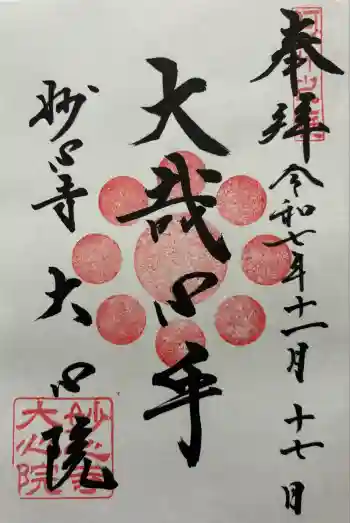 奉拝
令和七年十一月十七日
大哉心乎
妙心寺 大心院
妙心寺
大心院